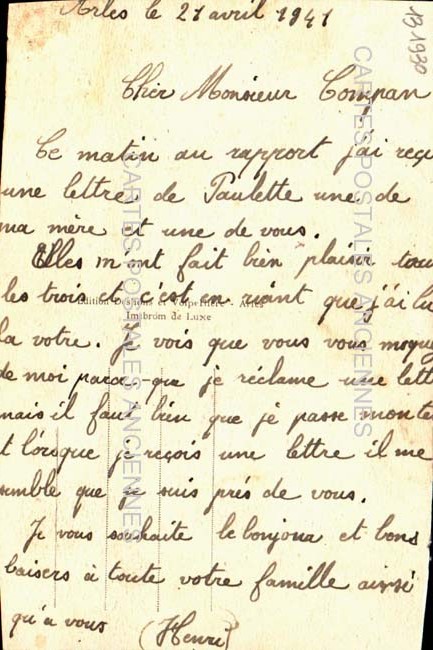 Arles le 21 avril 1941
13 1930
Cher Monsieur Compan
Ce matin au rapport j'ai reçu
une lettre de Paulette une de
ma mère et une de vous.
Elles m'ont fait bien plaisir tou
les trois et c'est en riant que j'ai lu
Edition Arles
Imbrom de Luxe
la votre. Je vois que vous vous moque
de moi parce-que je réclame une lett
mais il faut bien que je passe mon te
t lorsque je reçois une lettre il me
semble que je suis prés de vous.
Je vous souhaite le bonjour et bons
baisers à toute votre famille ainsi
qu'à vous (Henri)
CARTES POSTALES ANCIENNES
CARTES POSTALES ANCIENNES